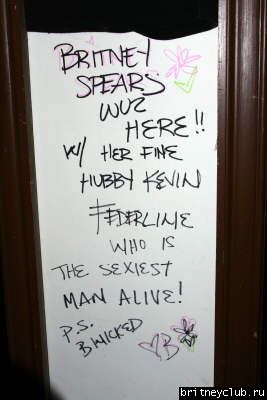 BRITNEY
SPEARS
WUZ
HERE!!
W/ HER FINE
HUBBY KEVIN
FEDERLINE
WHO IS
THE SEXIEST
MAN ALIVE!
P.S.
B WICKED
♡B
britneyclub.ru